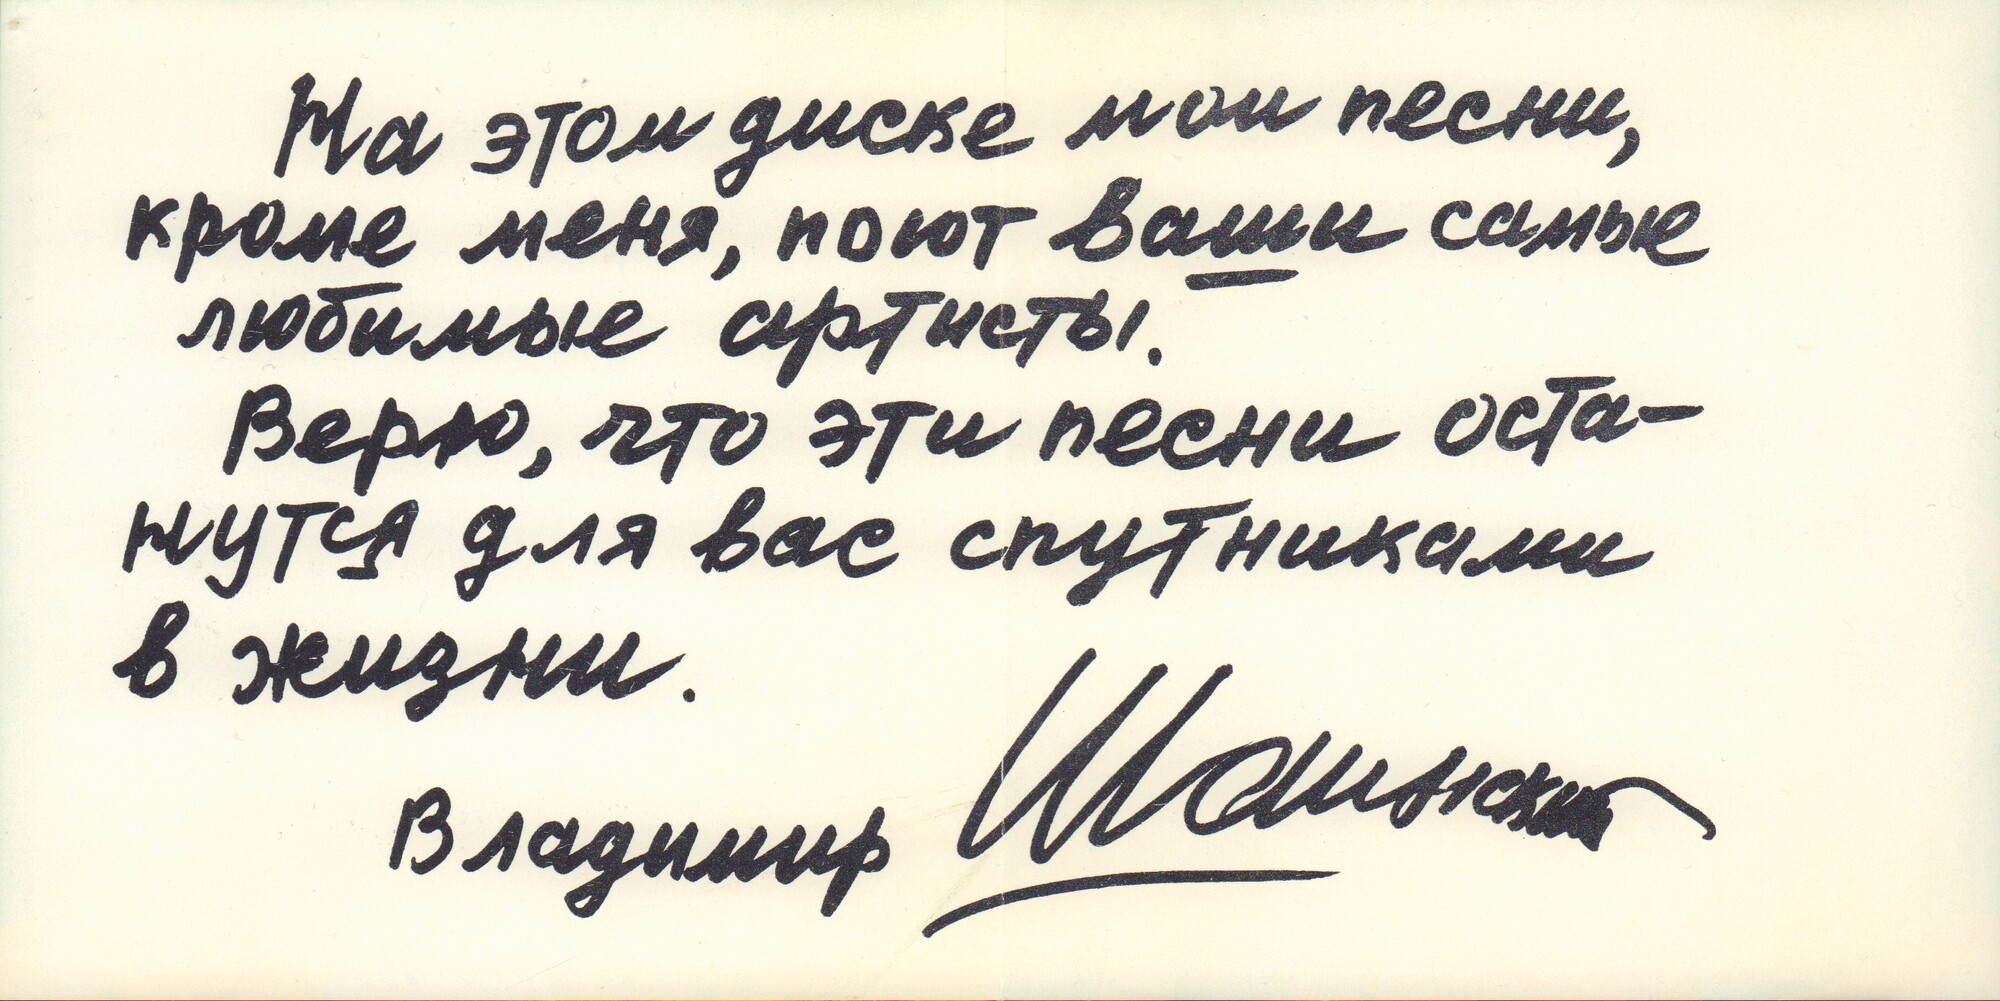 На этом диске мои песни,
кроме меня, поют ваши самые
любимые артисты.
Верю, что эти песни оста-
нутся для вас спутниками
в жизни.
Владимир Шаинский